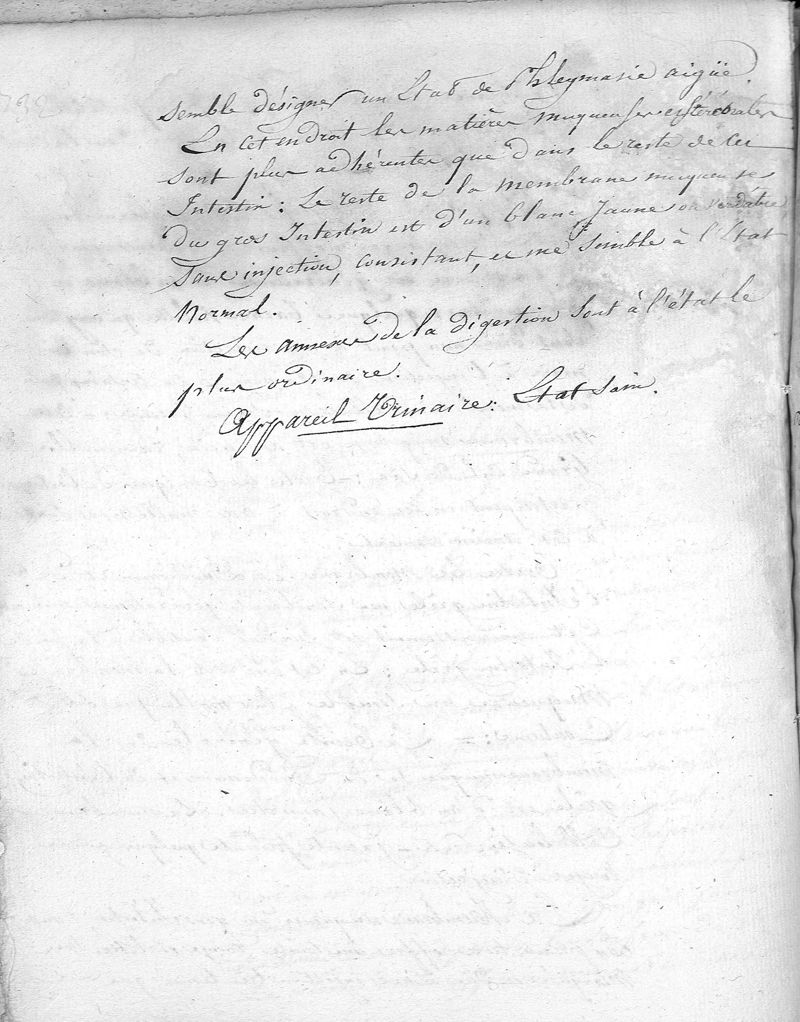 semble désigner un Etat de Phlegmasie aigüe.
En cet endroit les matières muqueuses et stércorales
sont plus adhérentes que dans le reste de cet
Intestin : Le reste de la membrane muqueuse
du gros Intestin est d'un blanc Jaune ou verdâtre
sans injection, consistant, et me semble à l'Etat
Normal.
Les annexes de la digestion sont à l'état le
plus ordinaire.
Appareil Urinaire : Etat sain.